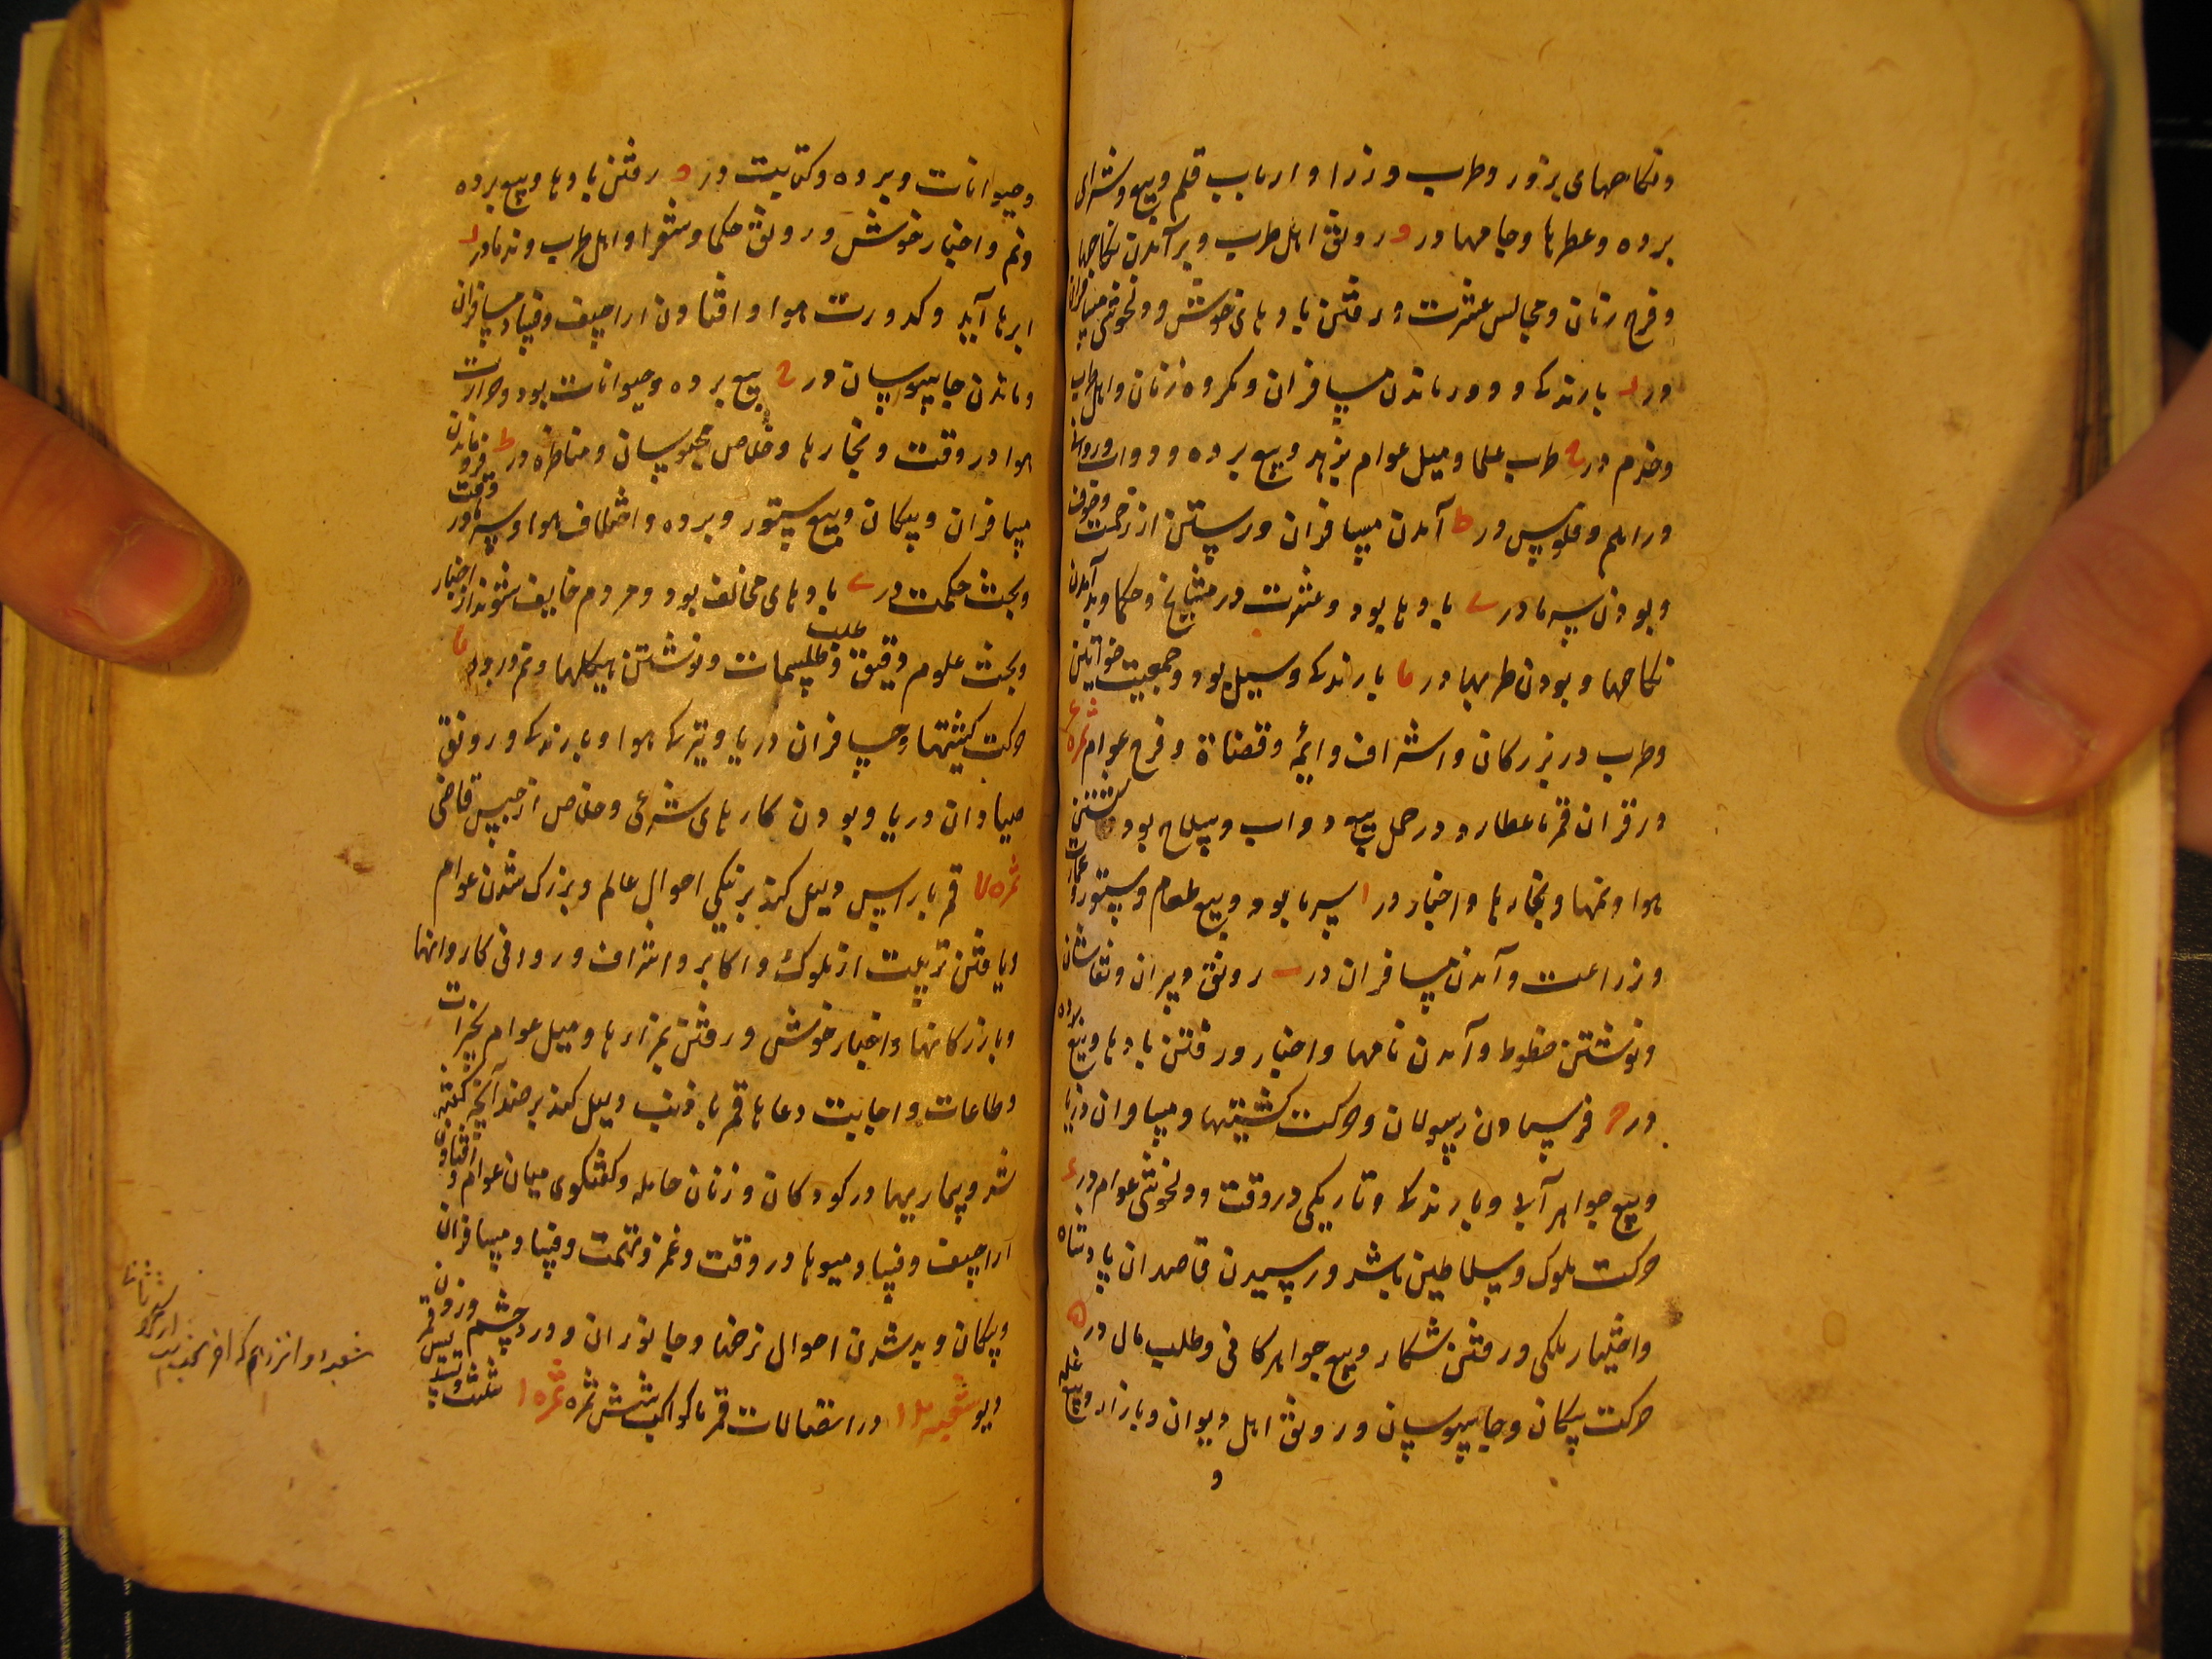 ونکاحهای بزور وطرب وزرا وارباب قلم وبیع وشرای
برده وعطرها وجامها در و رونق اهل طرب وبرآمدن نکاحها
وفرح زنان ومجالس عشرت ورفتن بادهای خوش ودلخوشی مسافران
در ر بارندکی ودور ماندن مسافران ومکروه زنان واهل طرب
وخدم در ح طرب علما ومیل عوام بزهد وبیع برده ودواب
وفلوس در ط آمدن مسافران ورستن از زحمت وخوف
وبودن سرما در ی بادها بود وعشرت در مشایخ وحکما وبد آمدن
نکاحها وبودن طربها در یا بارندکی وسیل بود وجمعیت خواتین
وطرب در بزرکان واشراف وائمه وقضاة وفرح عوام ثمره ۶
در قران قمر با عطارد در حمل بیع دواب وسلاح بود کشتن
هوا ونمها وبخارها واخبار در ا سرما بود وبیع طعام وستور وعمارت
وزراعت وآمدن مسافران در ب رونق دبیران ونقاشان
ونوشتن خطوط وآمدن نامها واخبار ورفتن بادها وبیع برده
در ح فرستادن رسولان وحرکت کشتیها ومسافران دریا
وبیع جواهر آبی وبارندکی وتاریکی در وقت ودلخوشی عوام در ۴
حرکت ملوک وسلاطین باشد ورسیدن قاصدان پادشاه
واختیار ملکی ورفتن بشکار وبیع جواهر کانی وطلب مال در ۵
حرکت پیکان وجاسوسان ورونق اهل دیوان وبازار وبیع غله
و
وحیوانات وبرده وکتابت در و رفتن بادها وبیع برده
ونم واخبار خوش ورونق حکما وشعرا واهل طرب وندما در ر
ابرها آید وکدورت هوا وافتادن اراجیف وفساد مسافران
وماندن جاسوسان در ح بیع برده وحیوانات بود وحرارت
هوا در وقت وبخارها وخلاص محبوسان ومناظره در ط فرو ماندن
مسافران وپیکان وبیع ستور وبرده واختلاف هوا وسرما در وقت
وبحث حکمت در ی بادهای مخالف بود ومردم خایف شوند از اخبار
وبحث علوم دقیق وطلب طلسمات ونوشتن هیکلها ونم در بود یا
حرکت کشتیها ومسافران دریا وتیرکی هوا وبارندکی ورونق
صیادان دریا وبودن کارهای شرعی وخلاص از حبس قاضی
ثمره ۷ قمر با راس دلیل کند بر نیکی احوال عالم وبزرک شدن عوام
ویافتن تربیت از ملوک واکابر واشراف وروانی کاروانها
وبازرکانها واخبار خوش ورفتن بمزارها ومیل عوام بخیرات
وطاعات واجابت دعاها قمر با ذنب دلیل کند بر ضد آنچه کفته
شد وبیماریها در کودکان وزنان حامله وکفتکوی میان عوام وافتادن
اراجیف وفساد میوها در وقت وغمز وتهمت وفساد مسافران
وپیکان وبد شدن احوال نرخها وجانوران ودرد چشم وزدن
دیو شعبه ۱۲ در اتصالات قمر با کواکب شش ثمره ثمره ۱ تثلیث وتسدیس قمر